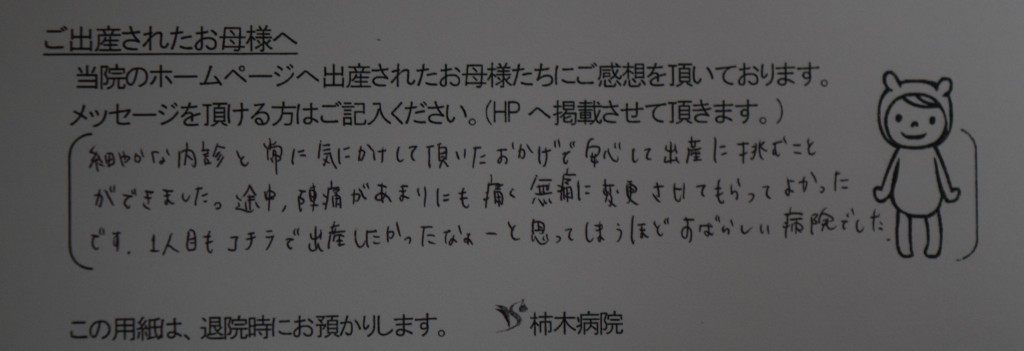 ご出産されたお母様へ
当院のホームページへ出産されたお母様たちにご感想を頂いております。
メッセージを頂ける方はご記入ください。(HPへ掲載させて頂きます。)
細やかな内診と常に気にかけして頂いたおかげで安心して出産に挑むこと
ができました。途中,陣痛があまりにも痛く無痛に変更させてもらってよかった
です.1人目もコチラで出産したかったなぁーと思ってしまうほどすばらしい病院でした.
この用紙は、退院時にお預かりします。
柿木病院